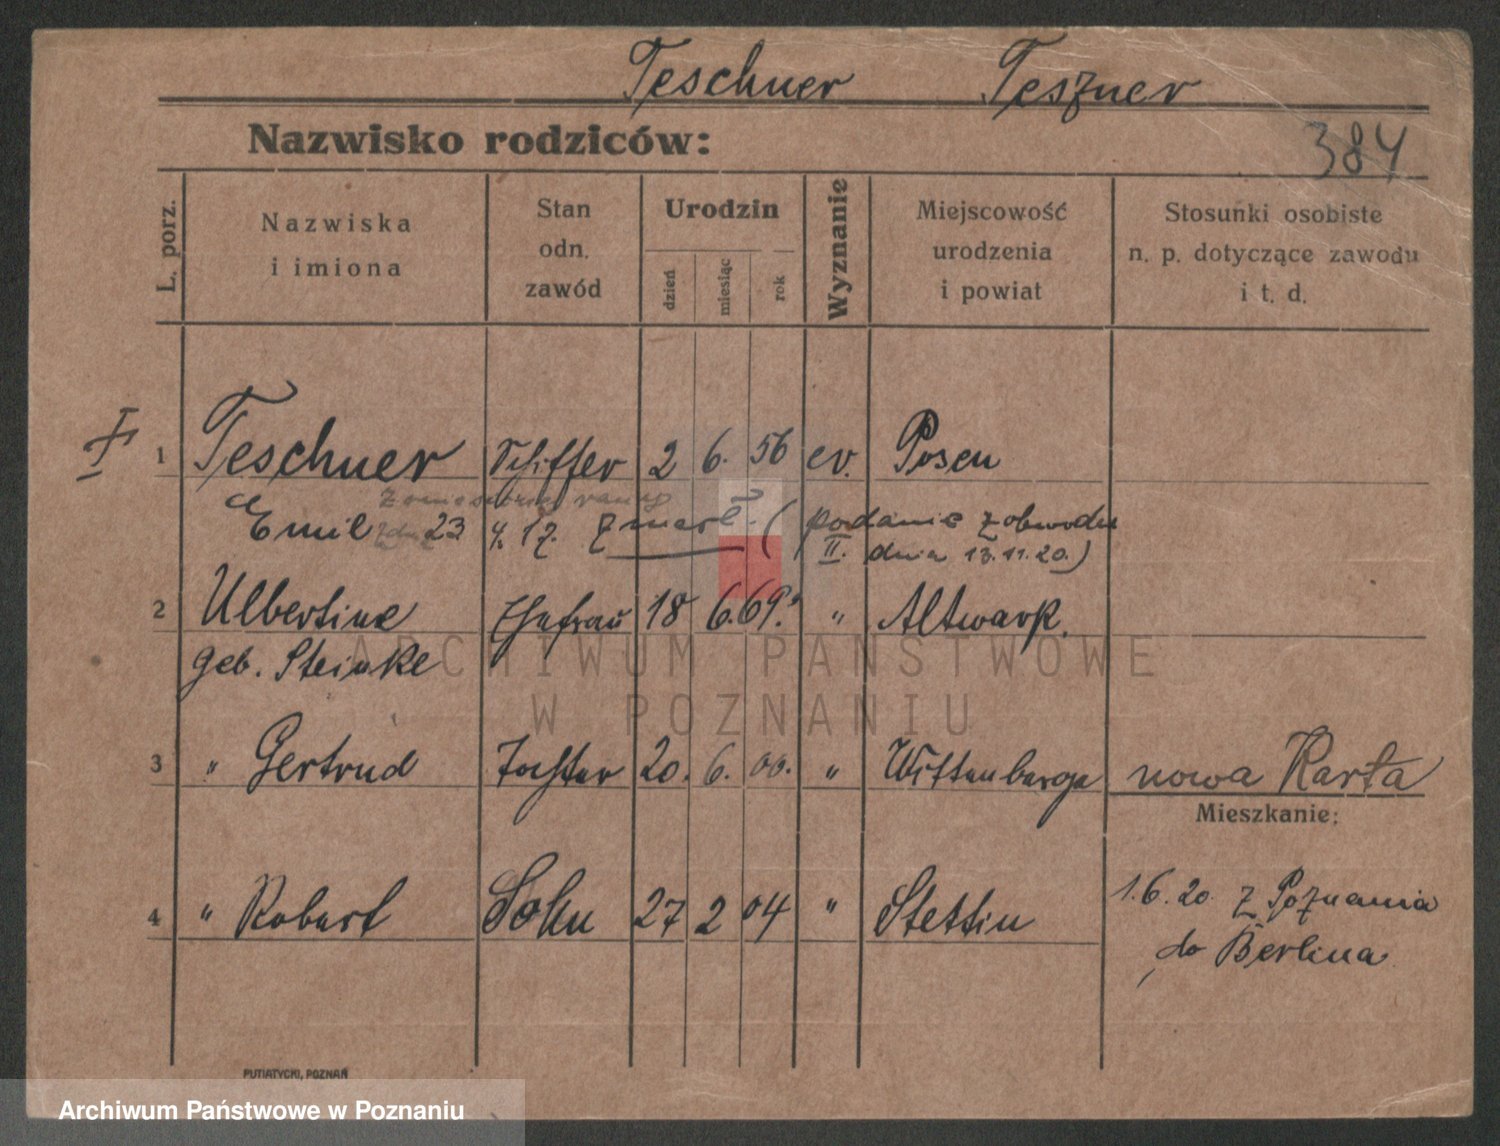 Teschner Teszner
Nazwisko rodziców:
384
L. porz.
Nazwiska
i imiona
Stan
odn.
zawód
Urodzin
dzień
miesiąc
rok
Wyznanie
Miejscowość
urodzenia
i powiat
Stosunki osobiste
n. p. dotyczące zawodu
i t. d.
I 1 Teschner Schiffer 2 6. 56 ev. Posen
Emil 23 4. 17. zmarł. (podanie z obwodu
II. dnia 13.11.20.)
2 Albertine Ehefrau 18 6. 69. " Altwarp.
geb. Steinke
ARCHIWUM PAŃSTWOWE
W POZNANIU
3 " Gertrud Tochter 20. 6. 00. " Wittenberge nowa Karta
Mieszkanie:
4 " Robert Sohn 27 2 04 " Stettin 1.6.20. z Poznania
do Berlina
PUTIATYCKI, POZNAŃ
Archiwum Państwowe w Poznaniu